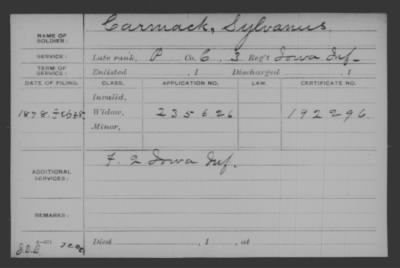 NAME OF SOLDIER: Carmack, Sylvanus.
SERVICE: Late rank, P Co. C, 3 Reg't Iowa Inf.
TERM OF SERVICE: Enlisted , 1 Discharged , 1
DATE OF FILING. CLASS. APPLICATION NO. LAW. CERTIFICATE NO.
Invalid,
1878. Widow, 235626 192296.
Minor,
ADDITIONAL SERVICES: F. 2 Iowa Inf.
REMARKS:
Died , 1 , at